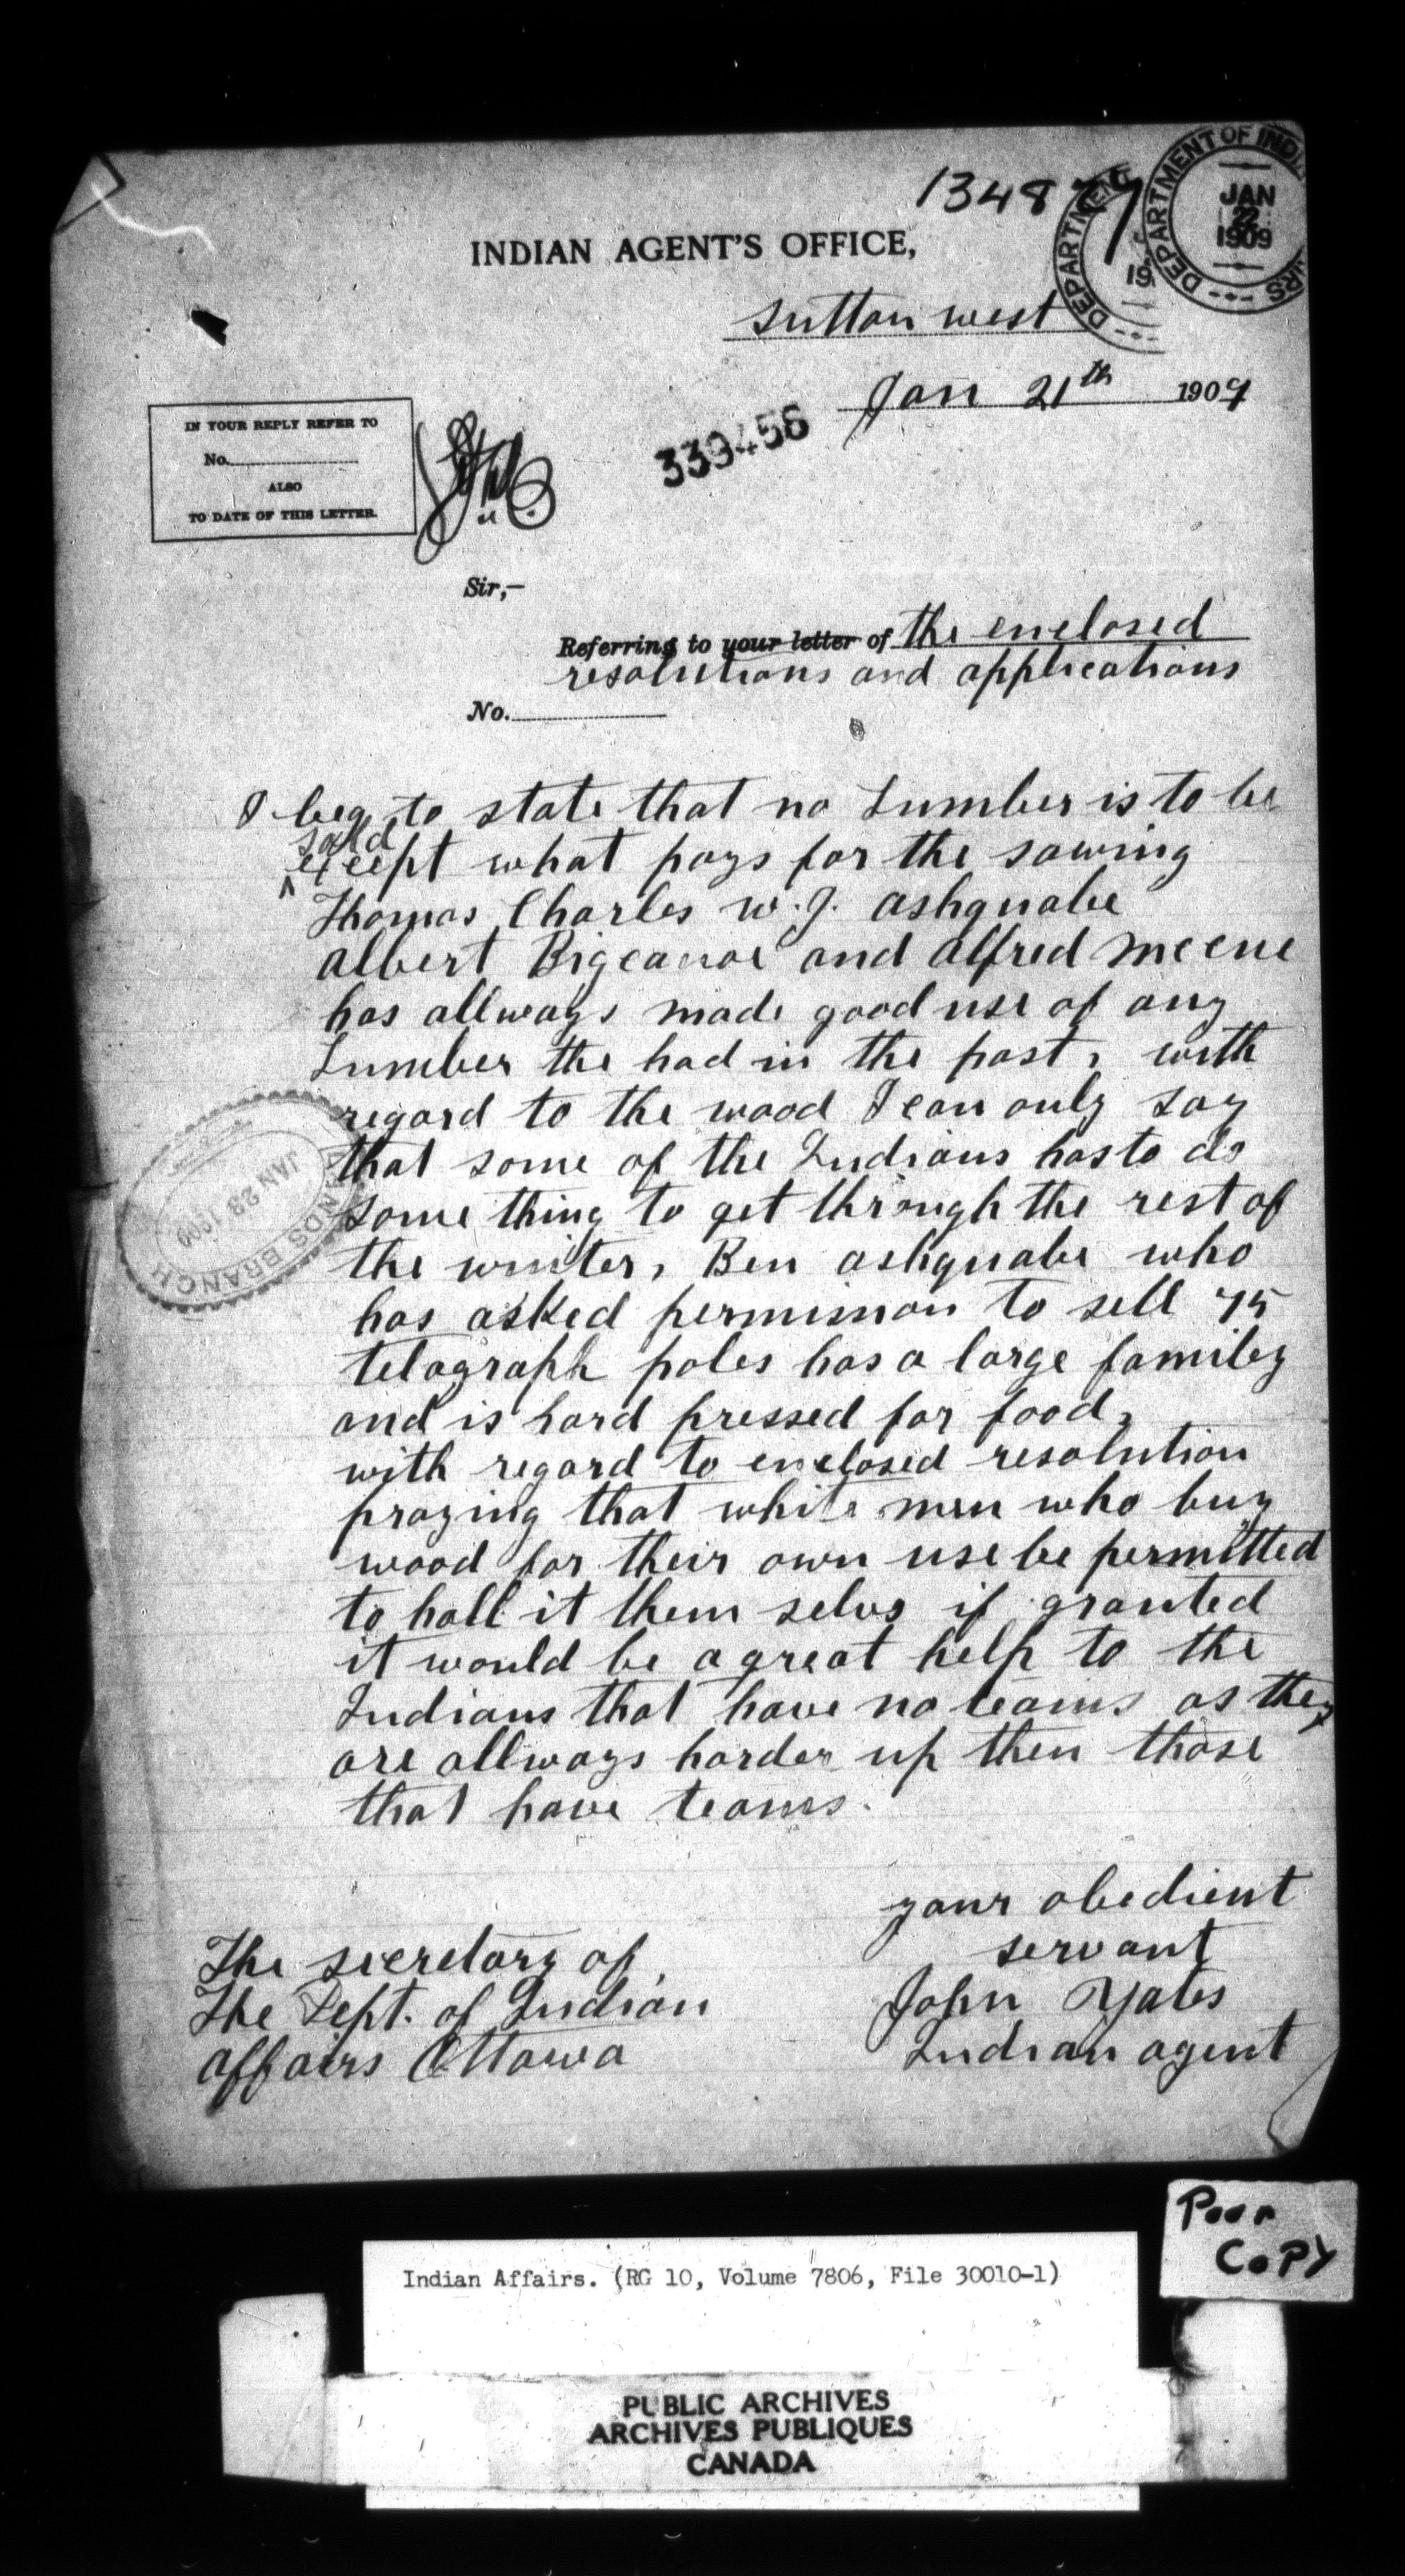 134879
DEPARTMENT OF INDIAN AFFAIRS
JAN
22
1909
DEPARTMENT
19
INDIAN AGENT'S OFFICE,
Sutton west
Jan 21th 1909
339456
IN YOUR REPLY REFER TO
No.
ALSO
TO DATE OF THIS LETTER.
Sir,—
Referring to your letter of the enclosed
resolutions and applications
No.
I beg to state that no Lumber is to be
sold
except what pays for the sawing
Thomas Charles w.J. ashquabe
albert Bigcanoe and alfred mccue
has allways made good use of any
Lumber the had in the past, with
regard to the wood I can only say
that some of the Indians has to do
some thing to get through the rest of
the winter, Ben ashquabe who
has asked permission to sell 75
telagraph poles has a large familey
and is hard pressed for food,
with regard to enclosed resolution
praying that white men who buy
wood for their own use be permitted
to hall it them selvs if granted
it would be a great help to the
Indians that have no teams as they
are allways harder up then those
that have teams.
LANDS BRANCH
JAN 23 1909
your obedient
servant
John Yates
Indian agent
The secretary of
The Dept. of Indian
affairs Ottawa
Poor
COPY
Indian Affairs. (RG 10, Volume 7806, File 30010-1)
PUBLIC ARCHIVES
ARCHIVES PUBLIQUES
CANADA